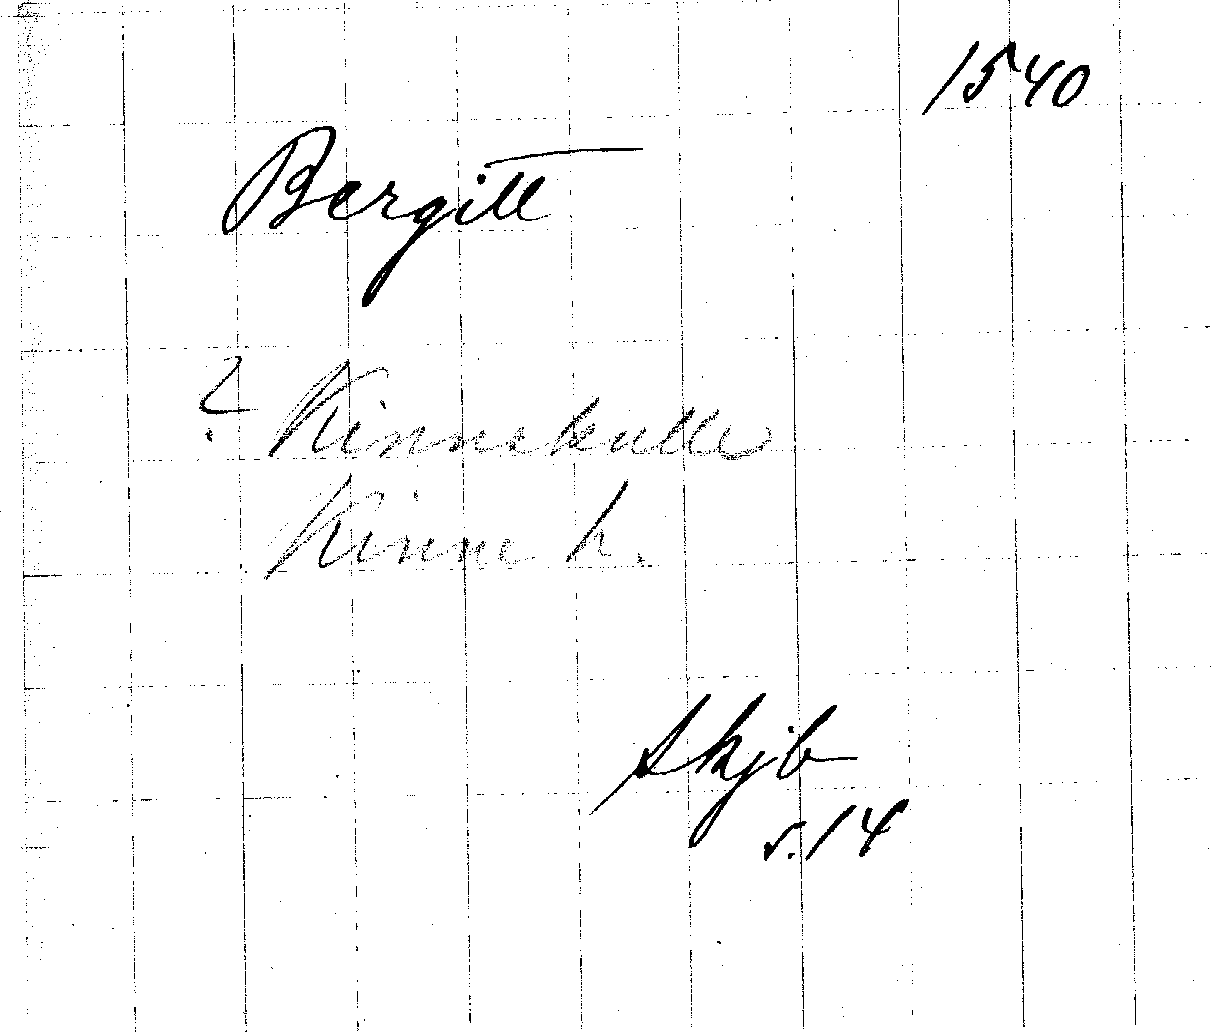 1540
Bergitt
? Kinnekulle
Kinne h.
Skjb
s. 14